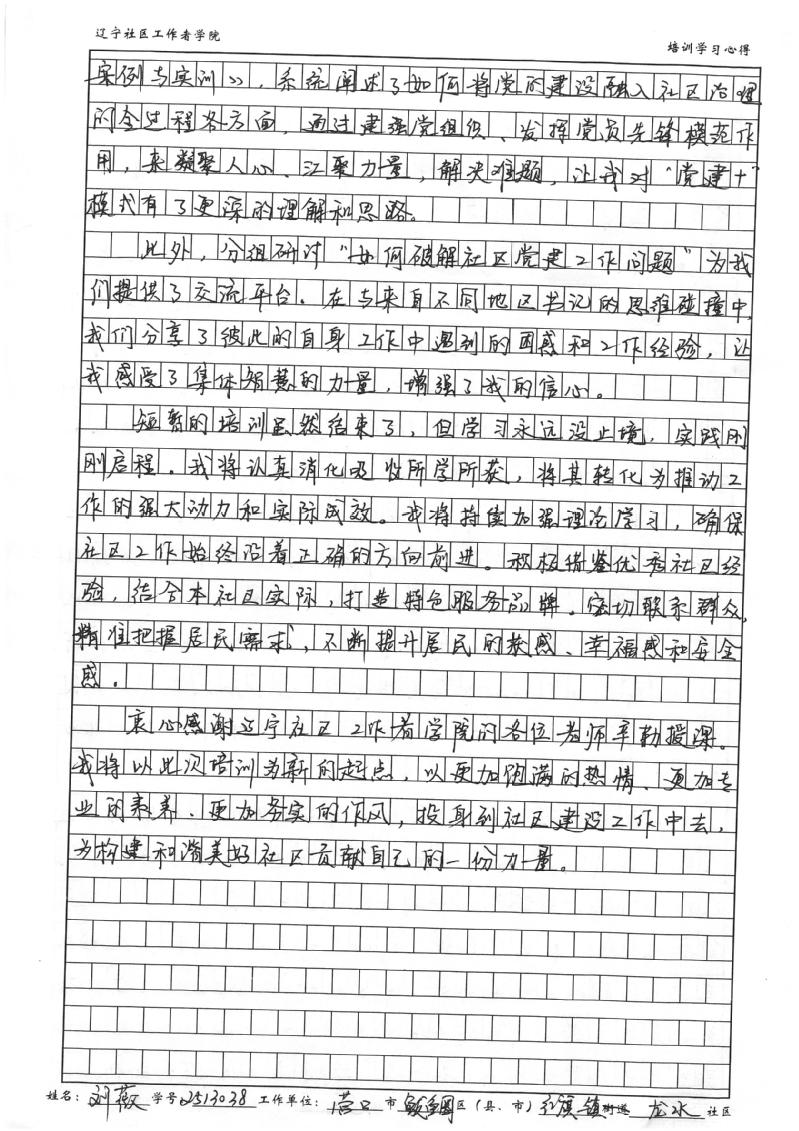 辽宁社区工作者学院
培训学习心得
案例与实训》,系统阐述了如何将党的建设融入社区治理
的全过程各方面,通过建强党组织、发挥党员先锋模范作
用,来凝聚人心、汇聚力量,解决难题,让我对“党建+”
模式有了更深的理解和思路。
此外,分组研讨“如何破解社区党建工作问题”为我
们提供了交流平台。在与来自不同地区书记的思维碰撞中,
我们分享了彼此的自身工作中遇到的困惑和工作经验,让
我感受了集体智慧的力量,增强了我的信心。
短暂的培训虽然结束了,但学习永远没止境,实践刚
刚启程。我将认真消化吸收所学所获,将其转化为推动工
作的强大动力和实际成效。我将持续加强理论学习,确保
社区工作始终沿着正确的方向前进。积极借鉴优秀社区经
验,结合本社区实际,打造特色服务品牌。密切联系群众,
精准把握居民需求,不断提升居民的获感、幸福感和安全
感。
衷心感谢辽宁社区工作者学院的各位老师辛勤授课。
我将以此次培训为新的起点,以更加饱满的热情、更加专
业的素养、更加务实的作风,投身到社区建设工作中去,
为构建和谐美好社区贡献自己的一份力量。
姓名:刘薇 学号2513038 工作单位:营口市鲅鱼圈区(县、市)红旗镇街道 龙水 社区